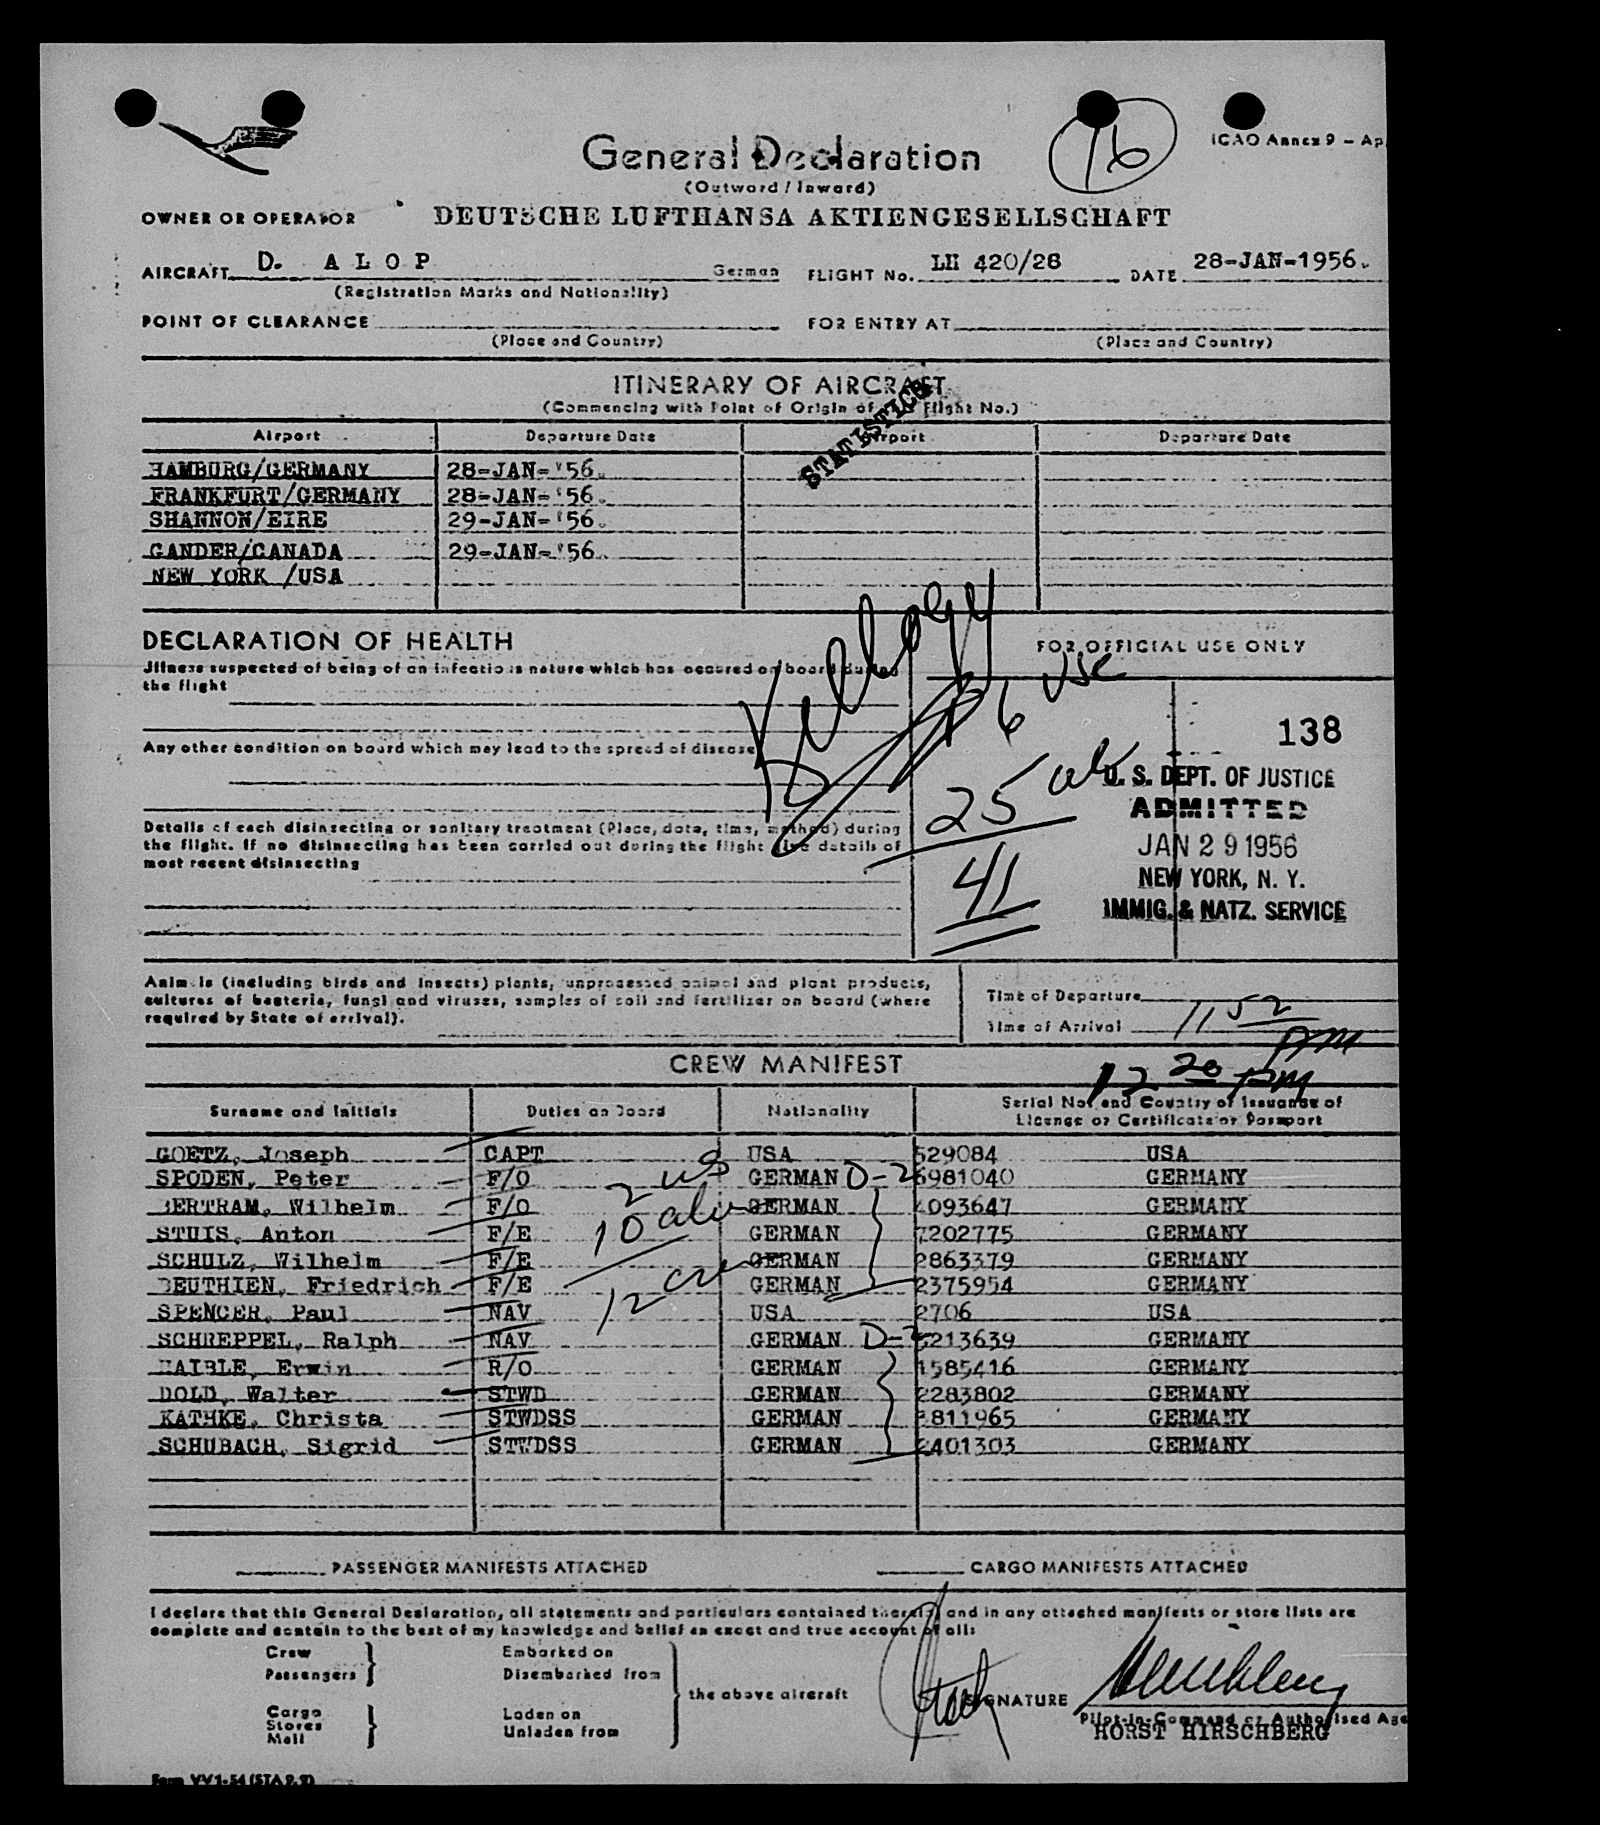 16
ICAO Annex 9 - Ap
General Declaration
(Outward / Inward)
OWNER OR OPERATOR DEUTSCHE LUFTHANSA AKTIENGESELLSCHAFT
AIRCRAFT D. A L O P German FLIGHT No. LH 420/28 DATE 28-JAN-1956.
(Registration Marks and Nationality)
POINT OF CLEARANCE FOR ENTRY AT
(Place and Country) (Place and Country)
ITINERARY OF AIRCRAFT
(Commencing with Point of Origin of Flight No.)
STATISTICS
Airport Departure Date Airport Departure Date
HAMBURG/GERMANY 28-JAN-'56.
FRANKFURT/GERMANY 28-JAN-'56.
SHANNON/EIRE 29-JAN-'56.
GANDER/CANADA 29-JAN-'56.
NEW YORK /USA
DECLARATION OF HEALTH FOR OFFICIAL USE ONLY
Illness suspected of being of an infectious nature which has occured on board during
the flight
Kellogg
16 USC
138
Any other condition on board which may lead to the spread of disease
25 al
U. S. DEPT. OF JUSTICE
ADMITTED
JAN 29 1956
NEW YORK, N. Y.
IMMIG. & NATZ. SERVICE
41
Details of each disinsecting or sanitary treatment (Place, date, time, method) during
the flight. If no disinsecting has been carried out during the flight give details of
most recent disinsecting
Animals (including birds and insects) plants, unprocessed animal and plant products,
cultures of bacteria, fungi and viruses, samples of soil and fertilizer on board (where
required by State of arrival).
Time of Departure
Time of Arrival 11 52 PM
12 20 PM
CREW MANIFEST
Surname and Initials Duties on Board Nationality Serial No. and Country of Issuance of
License or Certificate or Passport
GOETZ, Joseph CAPT USA 529084 USA
SPODEN, Peter F/O GERMAN D-2 6981040 GERMANY
BERTRAM, Wilhelm F/O GERMAN 4093647 GERMANY
STUIS, Anton F/E GERMAN 7202775 GERMANY
SCHULZ, Wilhelm F/E GERMAN 2863379 GERMANY
BEUTHIEN, Friedrich F/E GERMAN 2375954 GERMANY
SPENCER, Paul NAV USA 2706 USA
SCHREPPEL, Ralph NAV GERMAN D-2 213639 GERMANY
HAIBLE, Erwin R/O GERMAN 1585416 GERMANY
DOLD, Walter STWD GERMAN 2283802 GERMANY
KATHKE, Christa STWDSS GERMAN 811965 GERMANY
SCHUBACH, Sigrid STWDSS GERMAN 2401303 GERMANY
2 us
10 alien
12 crew
PASSENGER MANIFESTS ATTACHED CARGO MANIFESTS ATTACHED
I declare that this General Declaration, all statements and particulars contained therein, and in any attached manifests or store lists are
complete and contain to the best of my knowledge and belief an exact and true account of all:
Crew Embarked on
Passengers Disembarked from
the above aircraft
Cargo Laden on
Stores Unladen from
Mail
SIGNATURE
Pilot-in-Command or Authorised Age
HORST HIRSCHBERG
Form VV1-54 (STA 2.2)